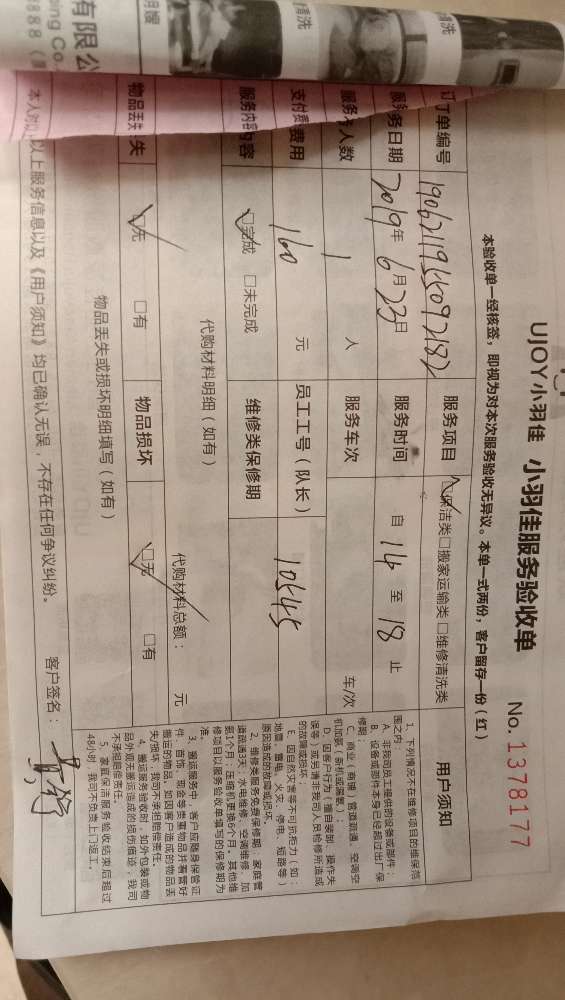 UJOY小羽佳 小羽佳服务验收单
No. 1378177
本验收单一经核签，即视为对本次服务验收无异议。本单一式两份，客户留存一份（红）
订单编号 1906211955092182 服务项目 ☑保洁类□搬家运输类□维修清洗类
服务日期 2019年6月23日 服务时间 自 14 至 18 止
服务人数 1 人 服务车次 车/次
支付费用 160 元 员工工号（队长） 10545
服务内容 ☑完成 □未完成 维修类保修期
代购材料明细（如有） 代购材料总额： 元
物品丢失 ☑无 □有 物品损坏 ☑无 □有
物品丢失或损坏明细填写（如有）
本人对以上服务信息以及《用户须知》均已确认无误，不存在任何争议纠纷。 客户签名：
用户须知
1、下列情况不在维修项目的维保范
围之内：
A、非我司员工提供的设备或部件；
B、设备或部件本身已经超过出厂保
修期；
C、商业（商铺）管道疏通、空调空
机加氟（新机或漏氟）；
D、因客户行为（擅自装卸、操作失
误等）或另请非我司人员检修所造成
的故障或损坏；
E、因自然灾害等不可抗拒力（如：
地震、雷电、火灾、停电、短路等）
原因造成的故障或损坏。
2、维修类服务免费保修期：家庭管
道疏通3天；水电维修、空调维修、加
氨1个月；压缩机更换6个月。其他维
修项目以服务验收单填写的保修期为
准。
3、搬运服务中，客户应随身保管证
件、首饰、现金等贵重物品并看管好
搬运的物品，未因客户造成的物品丢
失/损坏，我司不承担赔偿责任。
4、搬运服务验收时，如外包装或物
品外观无搬运造成的损伤痕迹，我司
不承担赔偿责任。
5、家庭保洁服务验收结束后超过
48小时，我司不负责上门返工。
有限公
ping Co.
8888
清洗